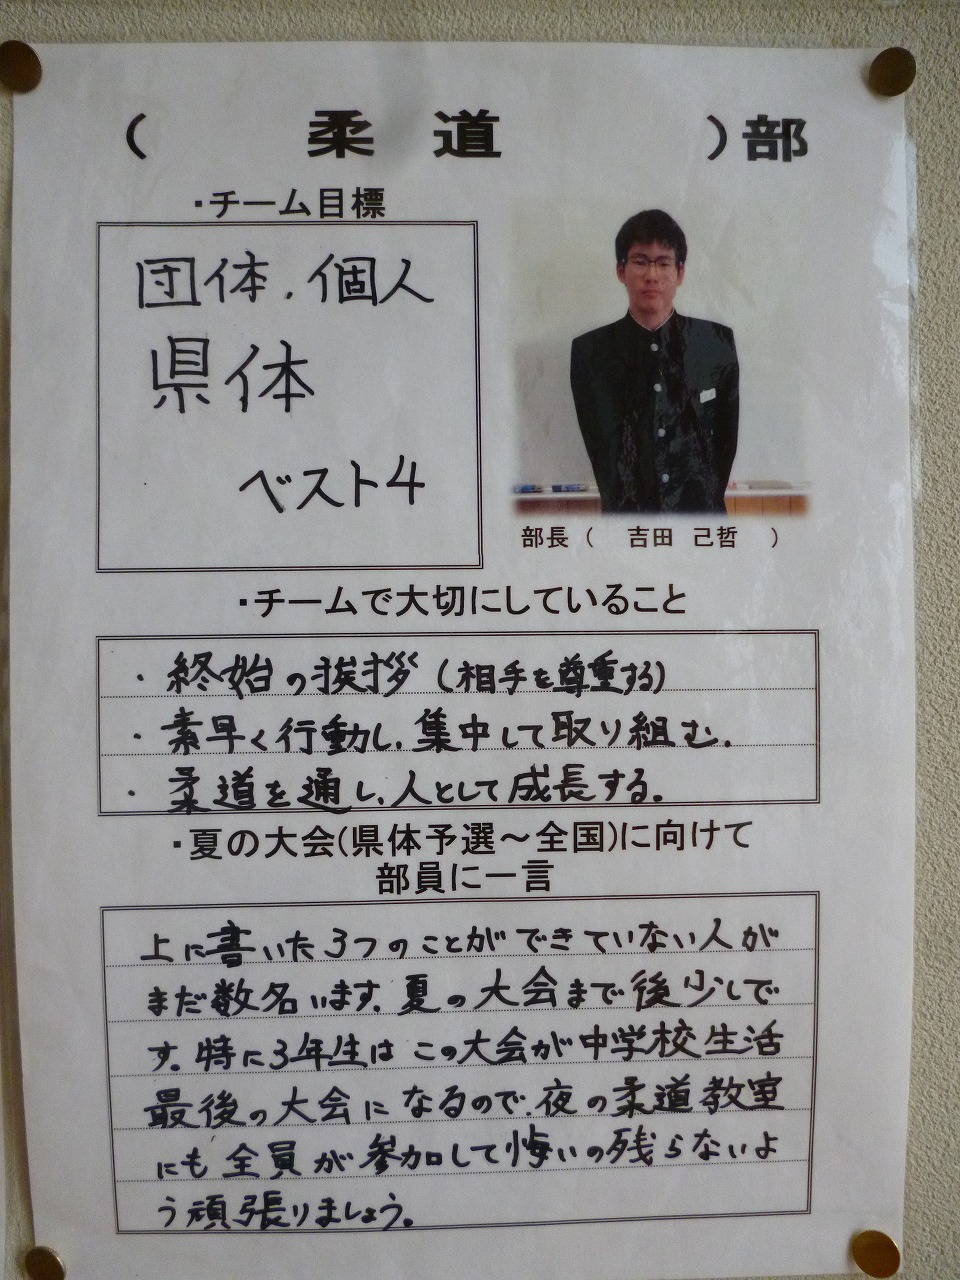 (　柔道　)部
・チーム目標
団体.個人
県体
ベスト4
部長（　吉田　己哲　）
・チームで大切にしていること
・終始の挨拶(相手を尊重する)
・素早く行動し、集中して取り組む.
・柔道を通し、人として成長する。
・夏の大会(県体予選～全国)に向けて
部員に一言
上に書いた3つのことができていない人が
まだ数名います。夏の大会まで後少しで
す。特に3年生はこの大会が中学校生活
最後の大会になるので、夜の柔道教室
にも全員が参加して悔いの残らないよ
う頑張りましょう。